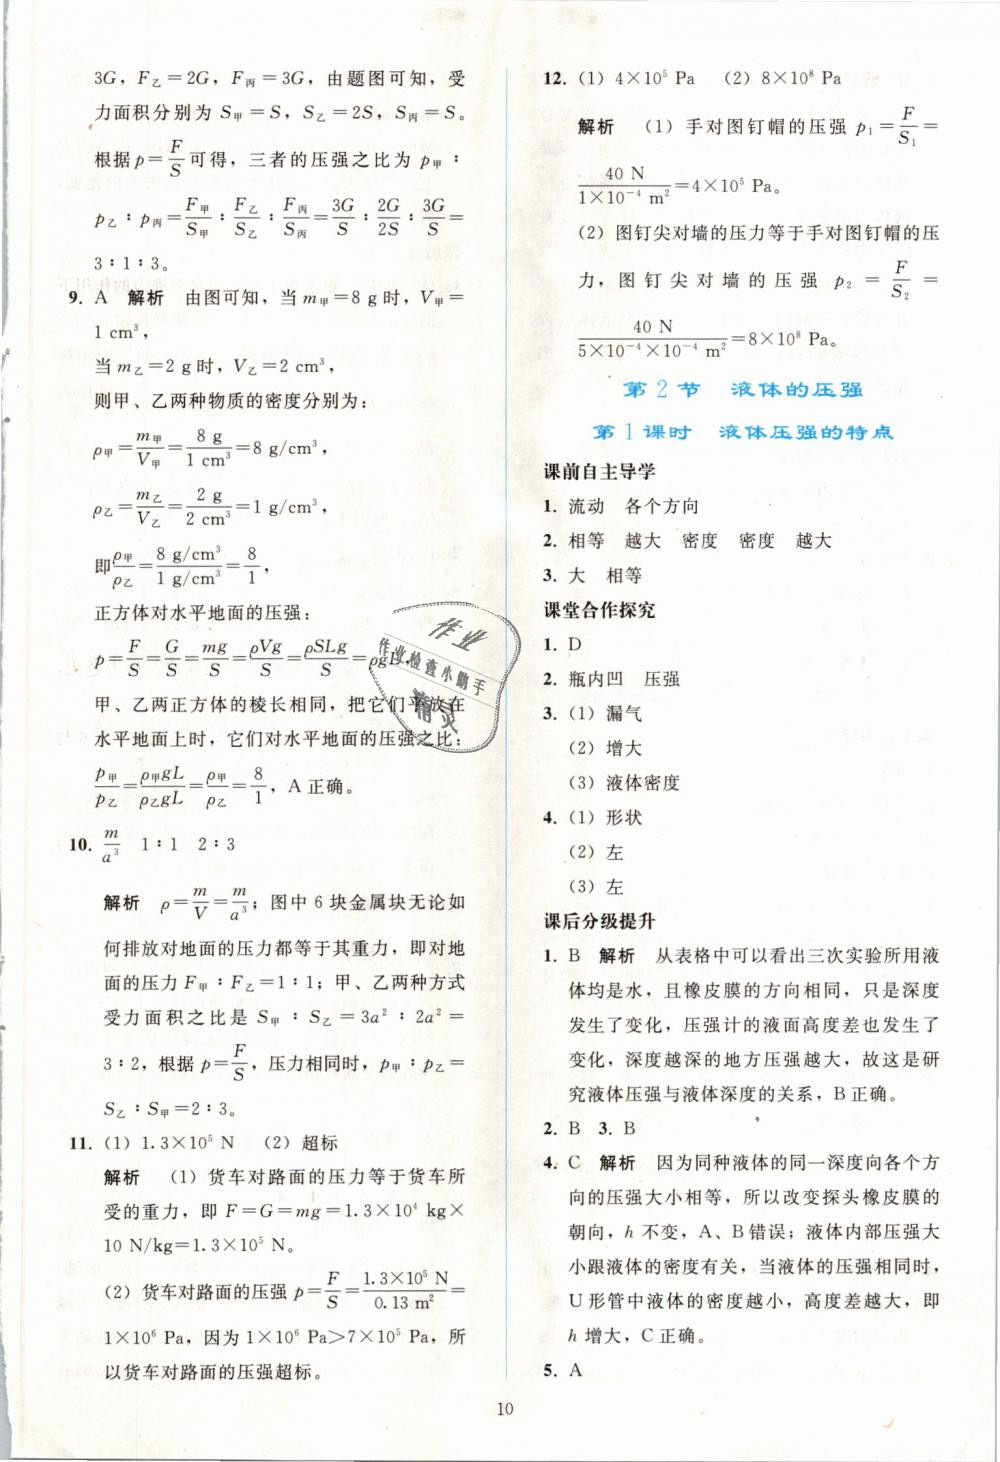 3G, F乙=2G, F丙=3G, 由题图可知, 受
力面积分别为 S甲=S, S乙=2S, S丙=S。
根据p=F/S可得, 三者的压强之比为 p甲∶
p乙∶p丙=F甲/S甲∶F乙/S乙∶F丙/S丙=3G/S∶2G/2S∶3G/S=
3∶1∶3。
9. A 解析 由图可知, 当m甲=8 g时, V甲=
1 cm³,
当m乙=2 g时, V乙=2 cm³,
则甲、乙两种物质的密度分别为:
ρ甲=m甲/V甲=8 g/1 cm³=8 g/cm³,
ρ乙=m乙/V乙=2 g/2 cm³=1 g/cm³,
即ρ甲/ρ乙=8 g/cm³/1 g/cm³=8/1,
正方体对水平地面的压强:
p=F/S=G/S=mg/S=ρVg/S=ρSLg/S=ρgL,
甲、乙两正方体的棱长相同, 把它们平放在
水平地面上时, 它们对水平地面的压强之比:
p甲/p乙=ρ甲gL/ρ乙gL=ρ甲/ρ乙=8/1, A正确。
10. m/a³ 1∶1 2∶3
解析 ρ=m/V=m/a³; 图中6块金属块无论如
何排放对地面的压力都等于其重力, 即对地
面的压力F甲∶F乙=1∶1; 甲、乙两种方式
受力面积之比是 S甲∶S乙=3a²∶2a²=
3∶2, 根据p=F/S, 压力相同时, p甲∶p乙=
S乙∶S甲=2∶3。
11. (1) 1.3×10⁵ N (2) 超标
解析 (1) 货车对路面的压力等于货车所
受的重力, 即F=G=mg=1.3×10⁴ kg×
10 N/kg=1.3×10⁵ N。
(2) 货车对路面的压强p=F/S=1.3×10⁵ N/0.13 m²=
1×10⁶ Pa, 因为1×10⁶ Pa>7×10⁵ Pa, 所
以货车对路面的压强超标。
12. (1) 4×10⁵ Pa (2) 8×10⁸ Pa
解析 (1) 手对图钉帽的压强p₁=F/S₁=
40 N/1×10⁻⁴ m²=4×10⁵ Pa。
(2) 图钉尖对墙的压力等于手对图钉帽的压
力, 图钉尖对墙的压强 p₂=F/S₂=
40 N/5×10⁻⁴×10⁻⁴ m²=8×10⁸ Pa。
第2节 液体的压强
第1课时 液体压强的特点
课前自主导学
1. 流动 各个方向
2. 相等 越大 密度 密度 越大
3. 大 相等
课堂合作探究
1. D
2. 瓶内凹 压强
3. (1) 漏气
(2) 增大
(3) 液体密度
4. (1) 形状
(2) 左
(3) 左
课后分级提升
1. B 解析 从表格中可以看出三次实验所用液
体均是水, 且橡皮膜的方向相同, 只是深度
发生了变化, 压强计的液面高度差也发生了
变化, 深度越深的地方压强越大, 故这是研
究液体压强与液体深度的关系, B正确。
2. B 3. B
4. C 解析 因为同种液体的同一深度向各个方
向的压强大小相等, 所以改变探头橡皮膜的
朝向, h不变, A、B错误; 液体内部压强大
小跟液体的密度有关, 当液体的压强相同时,
U形管中液体的密度越小, 高度差越大, 即
h增大, C正确。
5. A
作业
作业检查小助手
精灵
10